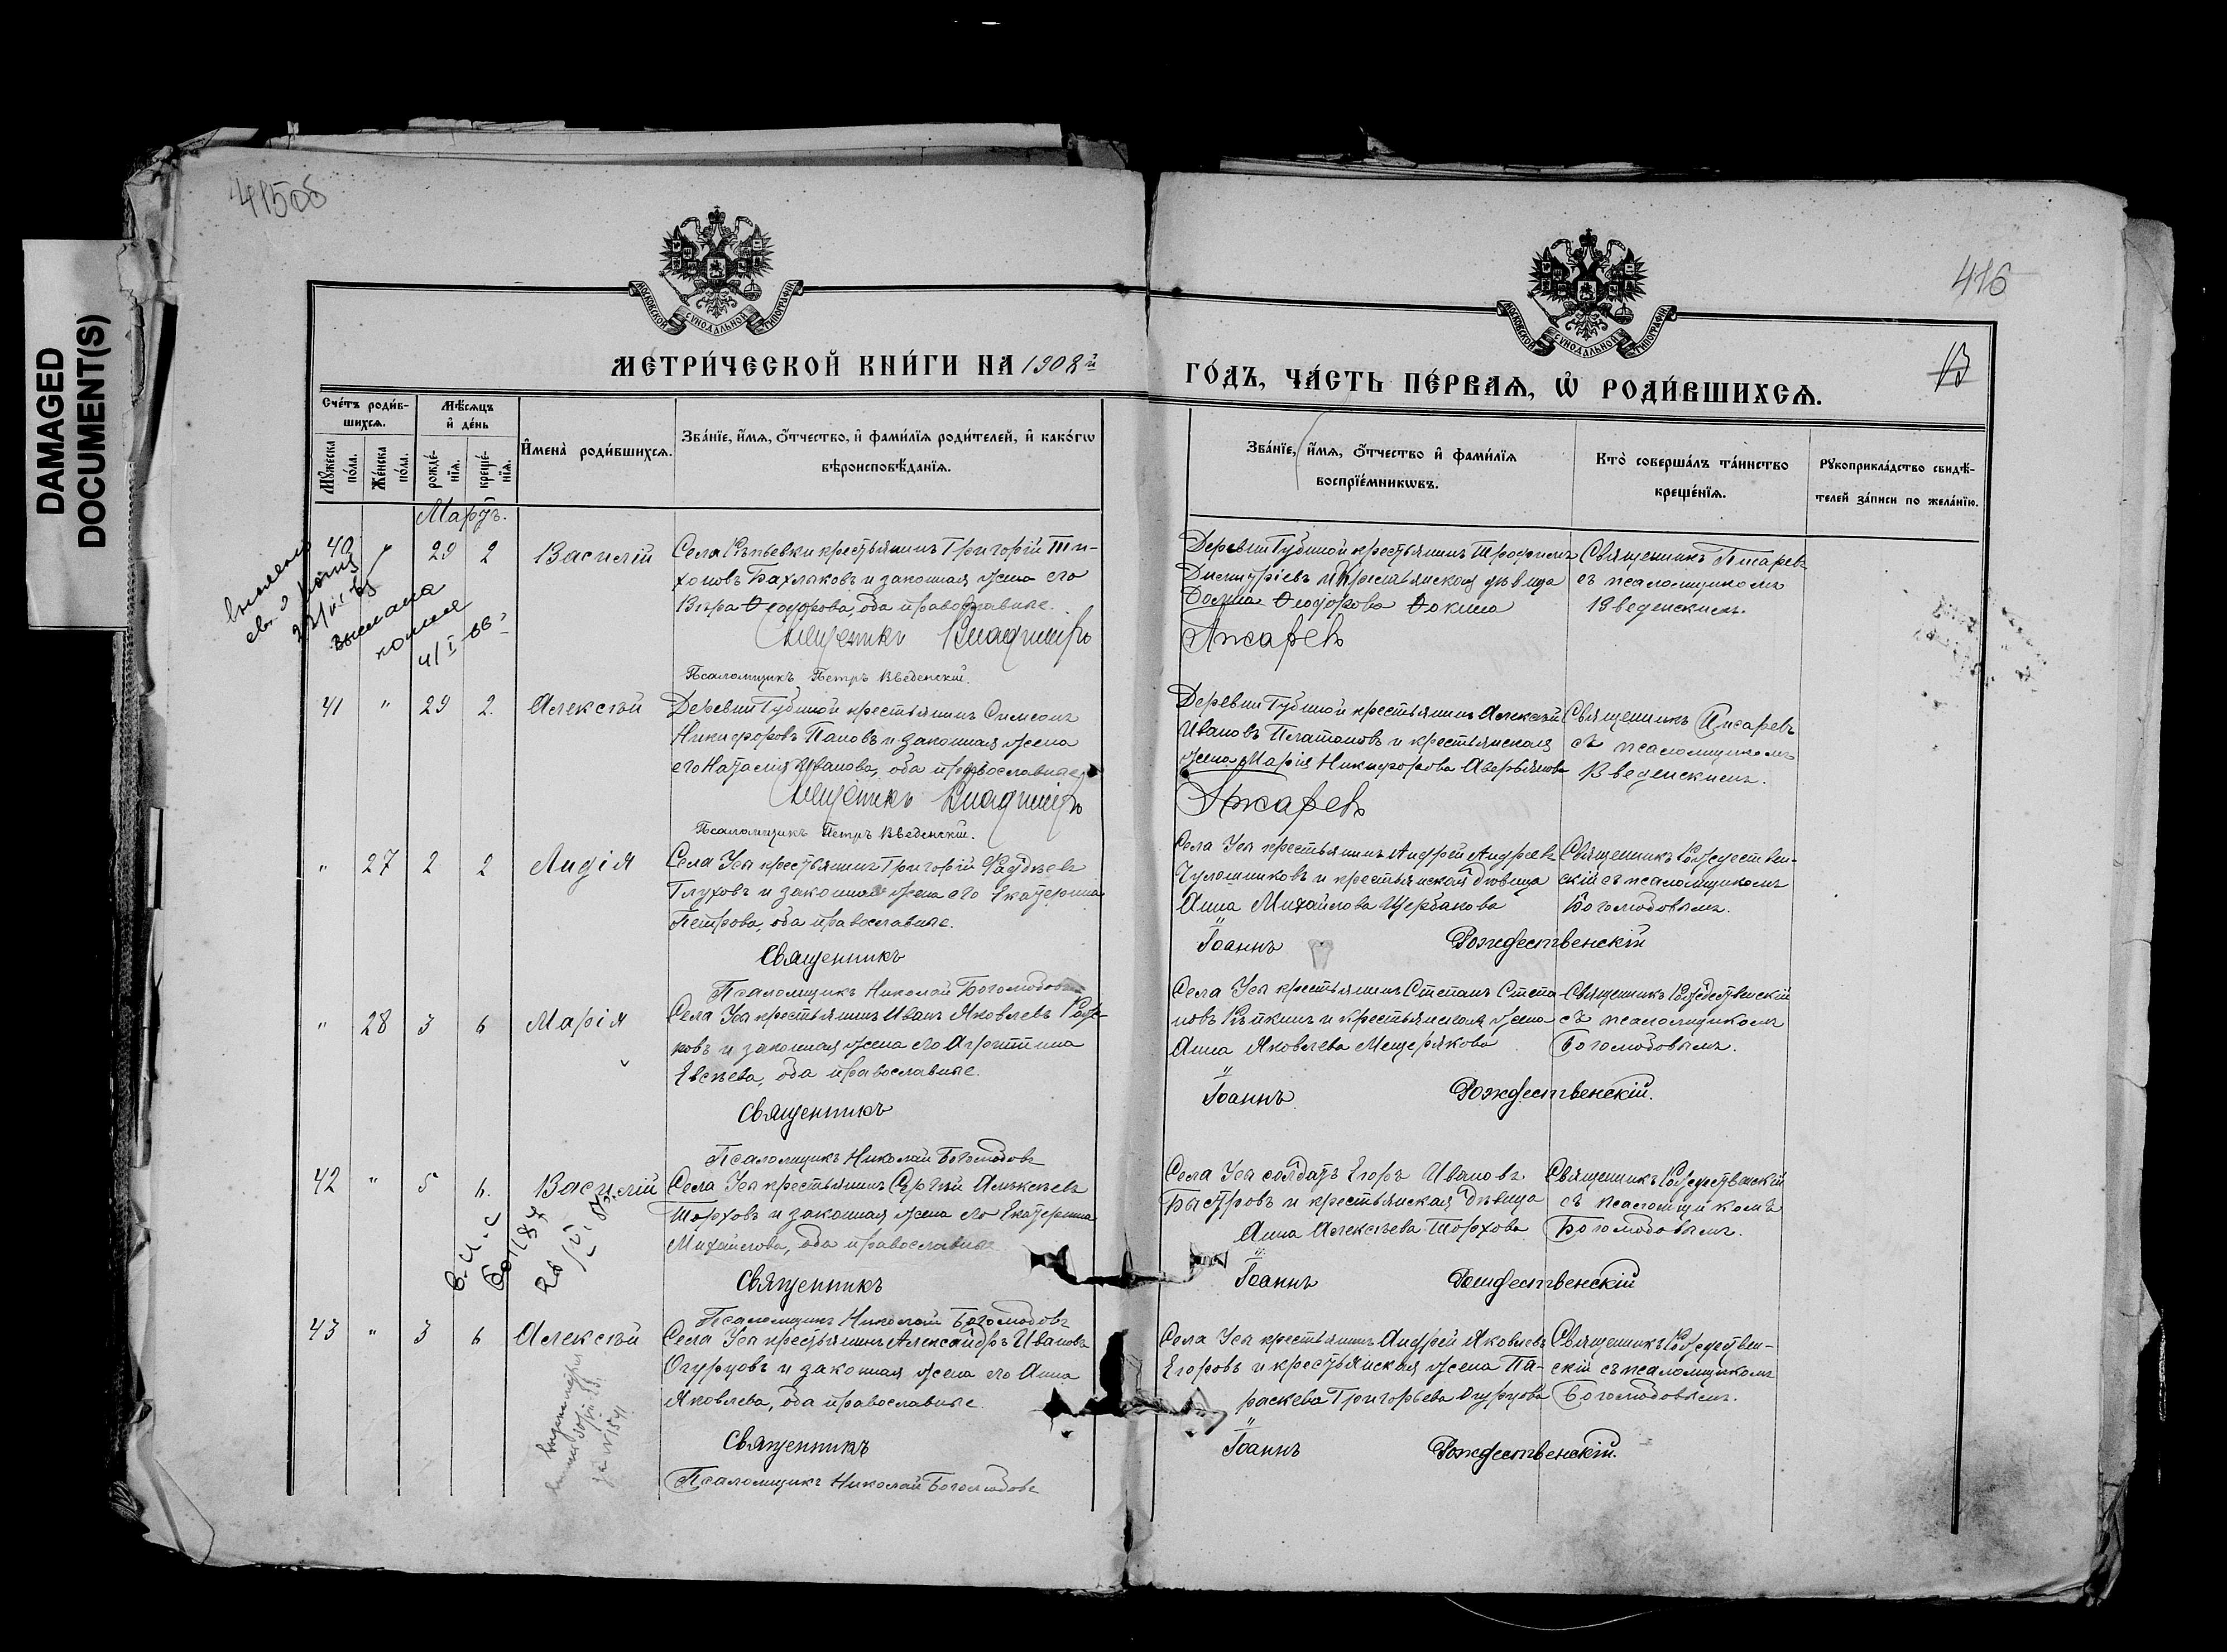 DAMAGED
DOCUMENT(S)
416
МОСКОВСКОЙ СѴНОДАЛЬНОЙ ТИПОГРАФІИ
МОСКОВСКОЙ СѴНОДАЛЬНОЙ ТИПОГРАФІИ
МЕТРИ́ЧЕСКОЙ КНИ́ГИ НА 1908й
ГО́ДЪ, ЧА́СТЬ ПЕ́РВАѦ, Ѡ РОДИ́ВШИХСѦ.
Сче́тъ роди́в-
шихсѧ.
Мꙋ́жеска
по́ла.
Же́нска
по́ла.
Мѣ́сѧцъ
и҆ де́нь
рожде́-
нїѧ.
креще́-
нїѧ.
И҆мена̀ роди́вшихсѧ.
Зва́нїе, и҆́мѧ, ѻ҆́тчество, и҆ фами́лїѧ роди́телей, и҆ како́гѡ
вѣроисповѣ́данїѧ.
Зва́нїе, и҆́мѧ, ѻ҆́тчество и҆ фами́лїѧ
воспрїе́мникѡвъ.
Кто̀ соверша́лъ та́инство
креще́нїѧ.
Рꙋкоприкла́дство свидѣ́-
телей за́писи по жела́нїю.
Мартъ.
40 " 29 2 Василій
Села крестьянинъ Григорій Ти-
хоновъ Бахлыковъ и законная жена его
Вѣра Ѳеодорова, оба православные.
Священникъ Владиміръ
Псаломщикъ Петръ Введенскій.
Деревни Губиной крестьянинъ Трофимъ
Димитріевъ и крестьянская дѣвица
Ѳеодорова
Писаревъ
Священникъ Писаревъ
съ псаломщикомъ
Введенскимъ.
41 " 29 2. Алексѣй
Деревни Губиной крестьянинъ Симеонъ
Никифоровъ Пановъ и законная жена
его Наталія Иванова, оба православные
Священникъ Владиміръ
Псаломщикъ Петръ Введенскій.
Деревни Губиной крестьянинъ Алексѣй
Ивановъ Платоновъ и крестьянская
жена Марія Никифорова Аверьянова
Писаревъ
Священникъ Писаревъ
съ псаломщикомъ
Введенскимъ.
" 27 2 2 Лидія
Села Усы крестьянинъ Григорій Фаддѣевъ
Глуховъ и законная жена его Екатерина
Петрова, оба православные.
Священникъ
Псаломщикъ Николай Боголюбовъ
Села Усы крестьянинъ Андрей Андреевъ
Чулошниковъ и крестьянская дѣвица
Анна Михайлова Щербакова
Іоаннъ Рождественскій
Священникъ Рождествен-
скій съ псаломщикомъ
Боголюбовымъ.
" 28 3 6 Марія
Села Усы крестьянинъ Иванъ Яковлевъ
и законная жена его Агриппина
Евсѣева, оба православные.
Священникъ
Псаломщикъ Николай Боголюбовъ
Села Усы крестьянинъ Степанъ Степа-
новъ и крестьянская жена
Анна Яковлева Мещерякова
Іоаннъ Рождественскій.
Священникъ Рождественскій
съ псаломщикомъ
Боголюбовымъ.
42 " 5 6. Василій
Села Усы крестьянинъ Сергѣй Алексѣевъ
Шорховъ и законная жена его Екатерина
Михайлова, оба православные
Священникъ
Псаломщикъ Николай Боголюбовъ
Села Усы солдатъ Егоръ Ивановъ
Быстровъ и крестьянская дѣвица
Анна Алексѣева Шорхова
Іоаннъ Рождественскій
Священникъ Рождественскій
съ псаломщикомъ
Боголюбовымъ.
43 " 3 6 Алексѣй
Села Усы крестьянинъ Александръ Ивановъ
Огурцовъ и законная жена его Анна
Яковлева, оба православные.
Священникъ
Псаломщикъ Николай Боголюбовъ
Села Усы крестьянинъ Андрей Яковлевъ
Егоровъ и крестьянская жена Па-
раскева Григорьева Огурцова
Іоаннъ Рождественскій.
Священникъ Рождествен-
скій съ псаломщикомъ
Боголюбовымъ.